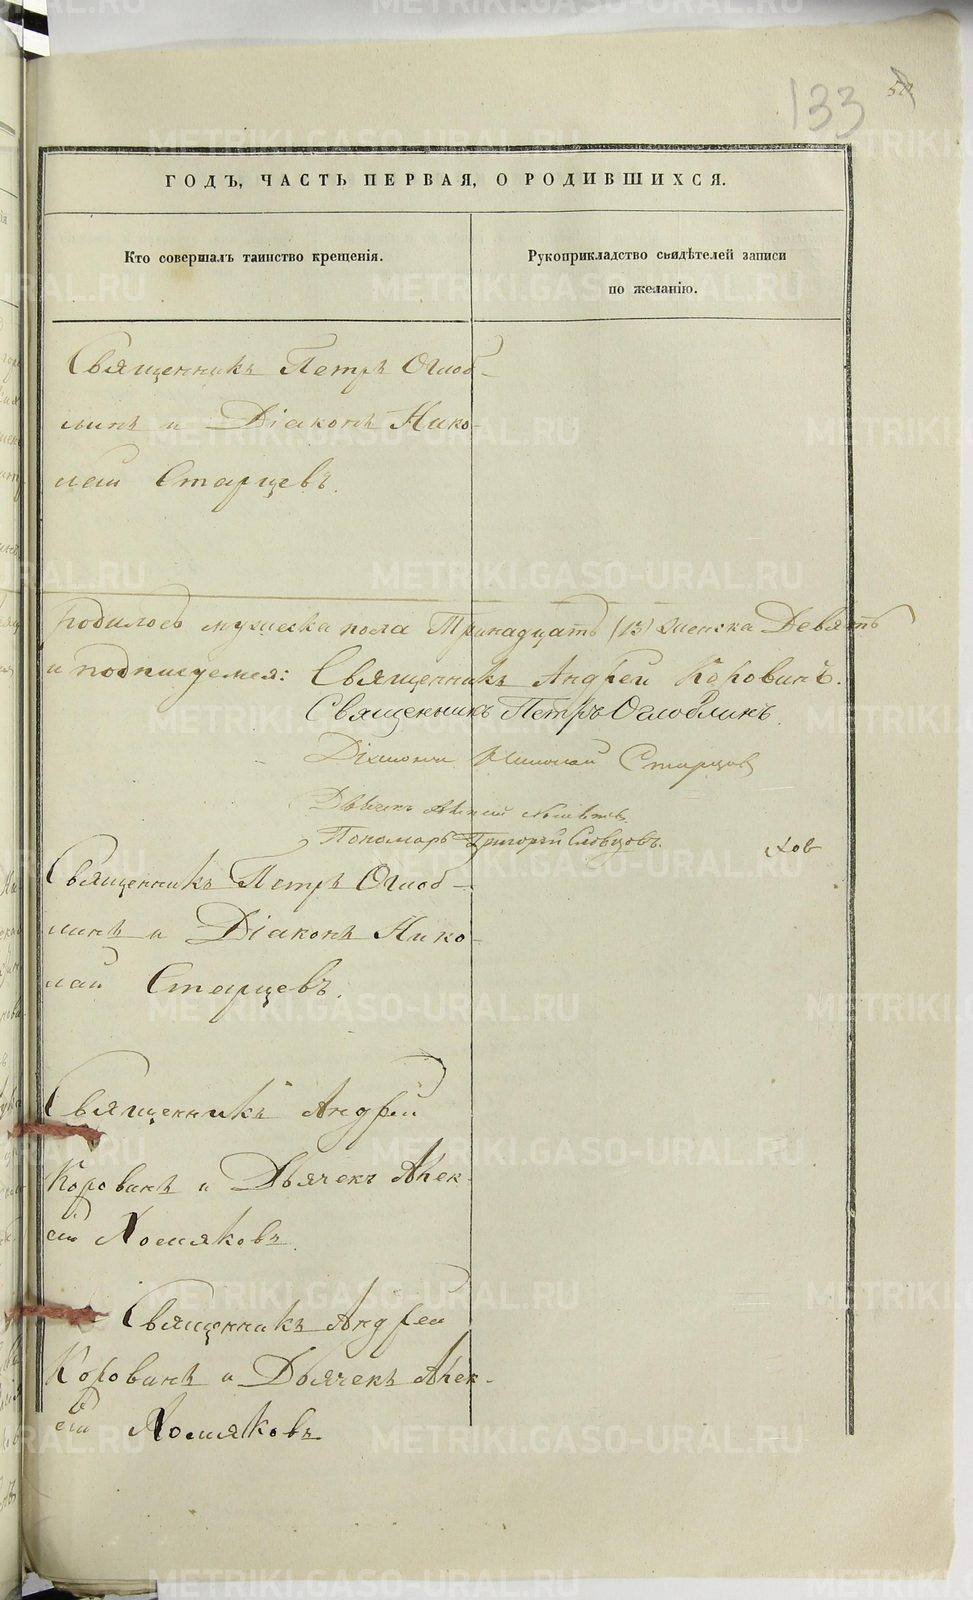 133
ГОДЪ, ЧАСТЬ ПЕРВАЯ, О РОДИВШИХСЯ.
Кто совершалъ таинство крещенія.
Рукоприкладство свидѣтелей записи
по желанію.
Священникъ Петръ Оглоб-
линъ и Діаконъ Нико-
лай Старцевъ.
родилось мужеска пола Тринадцать (13) женска Девять
и подписуемся: Священникъ Андрей Коровинъ.
Священникъ Петръ Оглоблинъ.
Діаконъ Николай Старцовъ
Дьячекъ
Пономарь Григорій Словцовъ.
Священникъ Петръ Оглоб-
линъ и Діаконъ Нико-
лай Старцевъ.
Священникъ Андрей
Коровинъ и Дьячекъ Алек-
ѣй Хомяковъ.
Священникъ Андрей
Коровинъ и Дьячекъ Алек-
ѣй Хомяковъ
METRIKI.GASO-URAL.RU